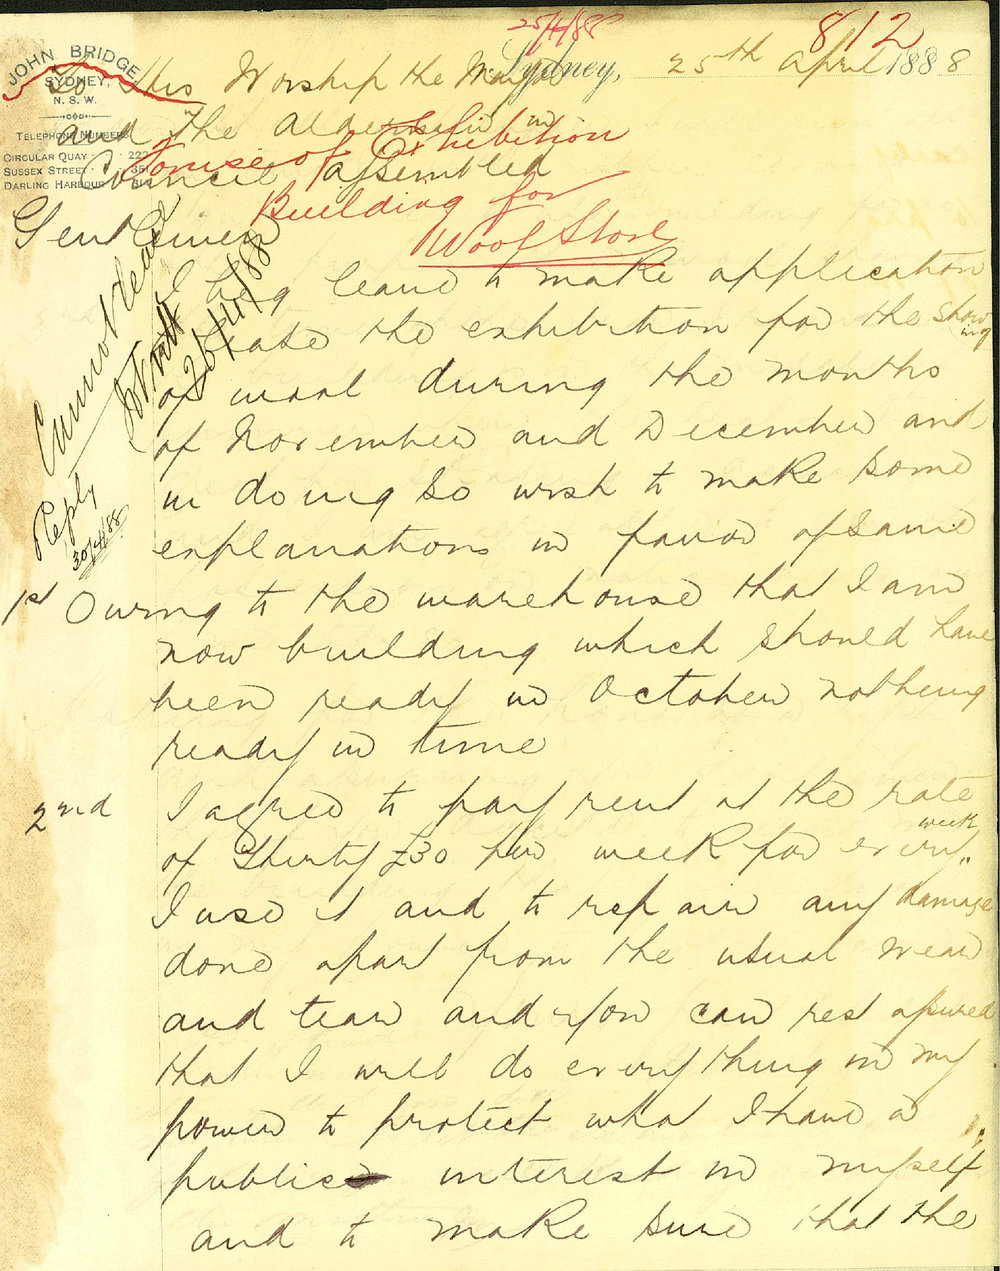 25/4/88
812
JOHN BRIDGE,
SYDNEY,
N. S. W.
TELEPHONE NUMBERS
CIRCULAR QUAY
SUSSEX STREET
DARLING HARBOUR
Sydney, 25th April 1888
To His Worship the Mayor
and The Aldermen in
Council assembled
For use of Exhibition
Building for
Wool Store
Gentlemen
I beg leave to make application
to the exhibition for the showing
of wool during the months
of November and December and
in doing so wish to make some
explanations in favor of same
Cannot lease
26/4/88
Reply
30/4/88
1st Owing to the warehouse that I am
now building which should have
been ready in October not being
ready in time
2nd I agree to pay rent at the rate
of Thirty £30 per week for every week
I use it and to repair any damage
done apart from the usual wear
and tear and you can rest assured
that I will do everything in my
power to protect what I have a
public interest in myself
and to make sure that the